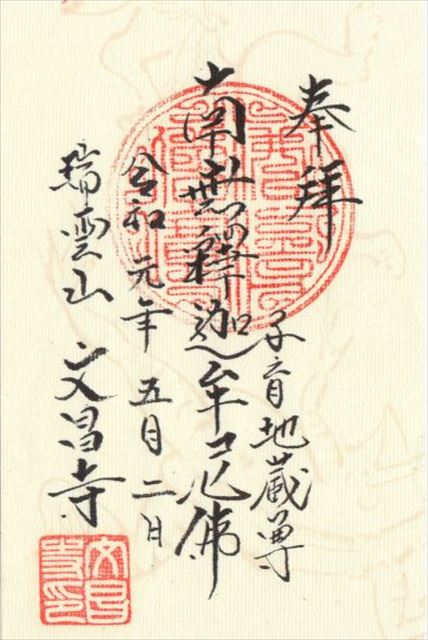 奉拝
子育地蔵尊
南無釋迦牟尼佛
令和元年五月二日
瑞雲山 文昌寺
文昌寺印